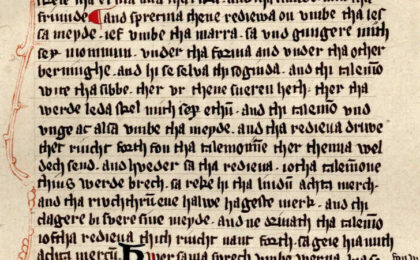 friunde. and sprecma thene rediewa on vmbe tha les
sa meyde. ief vmbe tha marra. sa vnd gungere mith
sex monnum. vnder tha forma and vnder tha other
bernighe. and hi se selva thi soginda. and thi talemō
wite tha sibbe. ther vr thene sueren heth. ther tha
werde leda skel mith sex ethū. and thi talemō vnd
vnge ac alsa vmbe tha meyde. and tha redieva driwe
thet riucht forth fon tha talemōne ther themna wel
dech send. and hveder sa tha redieva. iotha talemōne
thius werde brech. sa reke hi tha liudū achta merch
and tha riuchthirū ene halwe hageste merk. and thi
clagere bi fvere sine meyde. and ne dwath tha talemō
ioftha redieva thich riucht naut forth. sa geie hia mith
achta mercū. Hwersama sprech vmbe